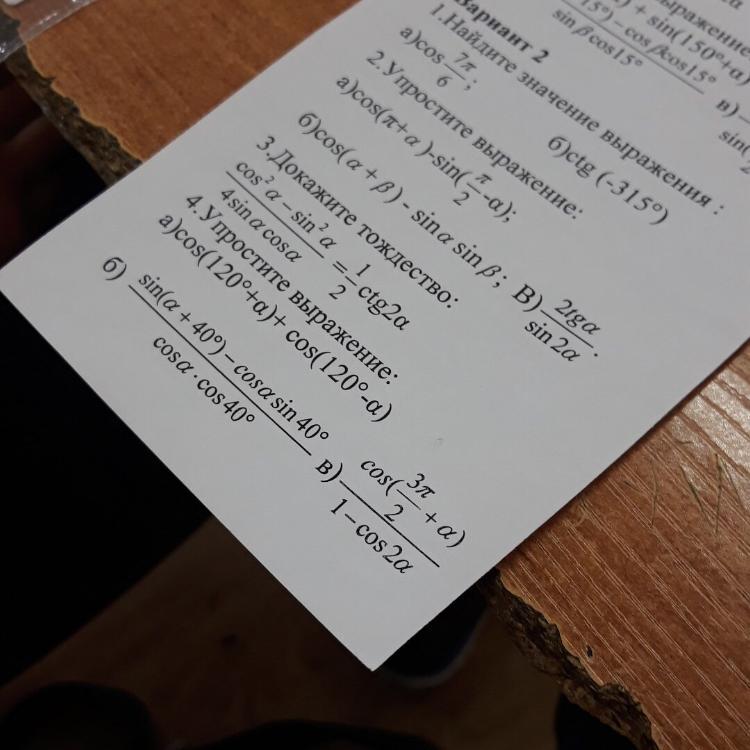 выражение
) + sin(150°+α)
15°) – cosβcos15°
sinβcos15°
в)
sin(
Вариант 2
1.Найдите значение выражения :
а)cos 7π/6; б)ctg (-315°)
2.Упростите выражение:
а)cos(π+α)-sin(π/2-α);
б)cos(α + β) - sinα sinβ; В) 2tgα/sin2α.
3.Докажите тождество:
cos²α – sin²α / 4sinαcosα = 1/2 ctg2α
4.Упростите выражение:
а)cos(120°+α)+ cos(120°-α)
б) sin(α + 40°) – cosα sin40° / cosα · cos40° в) cos(3π/2 + α) / 1 – cos2α